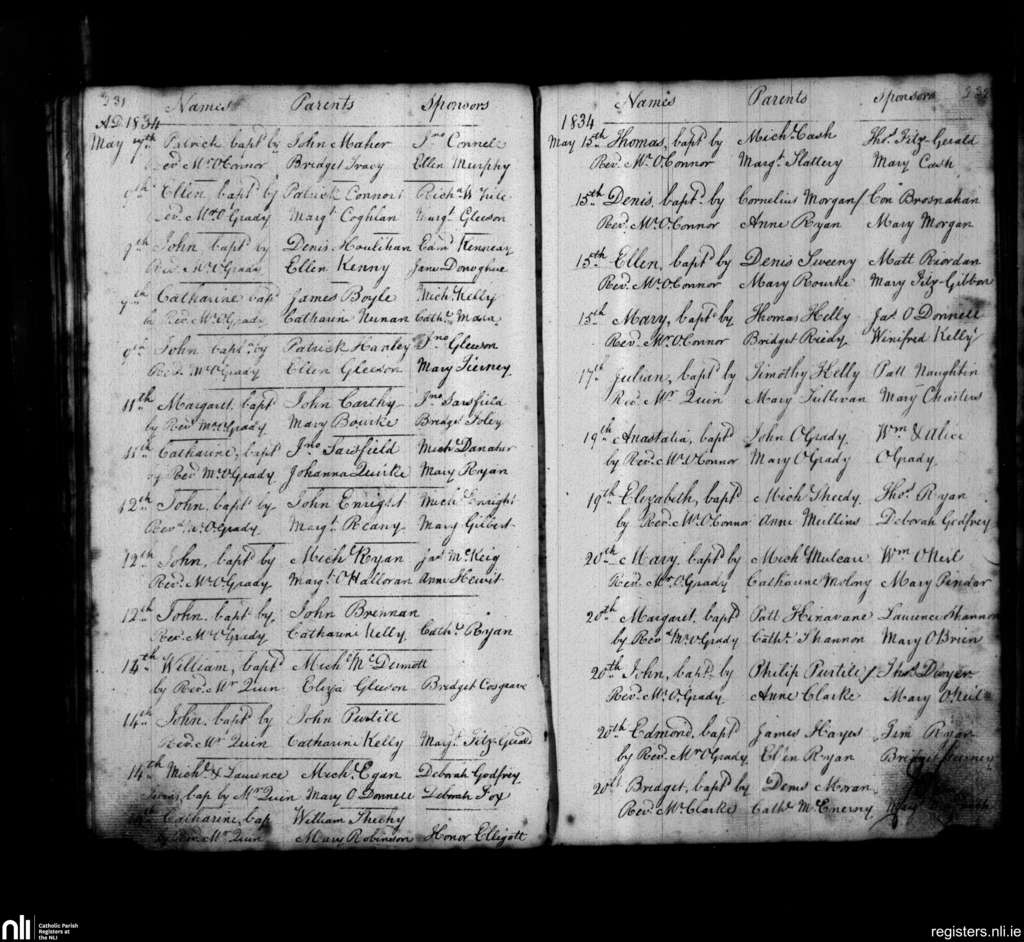 231 Names Parents Sponsors
AD 1834
May 9th Patrick bapt by John Maher Jno Connel
Rev. Mr. O'Connor Bridget Tracy Ellen Murphy
9th Ellen bapt. by Patrick Connors Richd White
Rev. Mr. O'Grady Margt Coghlan Margt Gleeson
9th John bapt by Denis Houlihan Edmd Kennedy
Rev. Mr. O'Grady Ellen Kenny Jane Donoghue
9th Catharine bapt James Boyle Michl Kelly
by Revd. Mr. O'Grady Catharine Nunan Cath.
9th John bapt. by Patrick Hanley Jno Gleeson
Revd. Mr. O'Grady Ellen Gleeson Mary Tierney
11th Margaret bapt John Carthy Jno Sarsfield
by Revd Mr. O'Grady Mary Bourke Bridget Foley
11th Catharine, bapt Jno Sarsfield Michl Danaher
by Revd Mr. O'Grady Johanna Quirke Mary Ryan
12th John, bapt. by John Enright Michl Enright
Revd Mr. O'Grady Margt. Reany Mary Gilbert
12th John, bapt. by Michl Ryan Jas McKeig
Revd. Mr. O'Grady Margt. O'Halloran Anne Hewit
12th John, bapt by John Brennan
Revd. Mr. O'Grady Catharine Kelly Cathe. Ryan
14th William, bapt Michl McDermott
by Revd. Mr Quin Eliza Gleeson Bridget Cosgrave
14th John, bapt. by John Purtill
Revd. Mr. Quin Catharine Kelly Margt. Fitz-Gerald
14th Michl. & Laurence Michl. Egan Deborah Godfrey
Twins, bap by Mr. Quin Mary O Donnell Deborah Fox
Catharine, bap William Sheehy
by Revd. Mr. Quin Mary Robinson Honor Elligott
Names Parents Sponsors
1834
May 15th Thomas, bapt by Michl. Cash Thos. Fitz-Gerald
Revd. Mr. O'Connor Margt. Slattery Mary Cash
15th Denis, bapt. by Cornelius Morgan Con Brosnahan
Revd. Mr. O'Connor Anne Ryan Mary Morgan
15th Ellen, bapt. by Denis Sweeny Matt Riordan
Revd. Mr. O'Connor Mary Rourke Mary Fitz-Gibbon
15th Mary, bapt. by Thomas Kelly Jas. O Donnell
Revd. Mr. O'Connor Bridget Riedy Winifred Kelly
17th Julian, bapt. by Timothy Kelly Patt Naughtin
Revd. Mr. Quin Mary Sullivan Mary Charters
19th Anastatia, bapt John O Grady Wm & Alice
by Revd. Mr. O'Connor Mary O Grady O Grady
19th Elizabeth, bapt Mich Sheedy Thos. Ryan
by Revd. Mr. O'Connor Anne Mullins Deborah Godfrey
20th Mary, bapt. by Mich Mulcare Wm O Neil
Revd. Mr. O'Grady Catharine Molony Mary Pendar
20th Margaret, bapt Patt Hinavane Laurence Shannon
by Revd Mr. O'Grady Cathe. Shannon Mary O Brien
20th John, bapt. by Philip Purtill Thos. Dwyer
Revd. Mr. O'Grady Anne Clarke Mary O Neil
20th Edmond, bapt James Hayes Jim Ryan
by Revd. Mr. O'Grady Ellen Ryan Bridget
20th Bridget, bapt. by Denis Moran
Revd. Mr. Clarke Cathe. McEnerny
nli Catholic Parish
Registers at
the NLI
registers.nli.ie